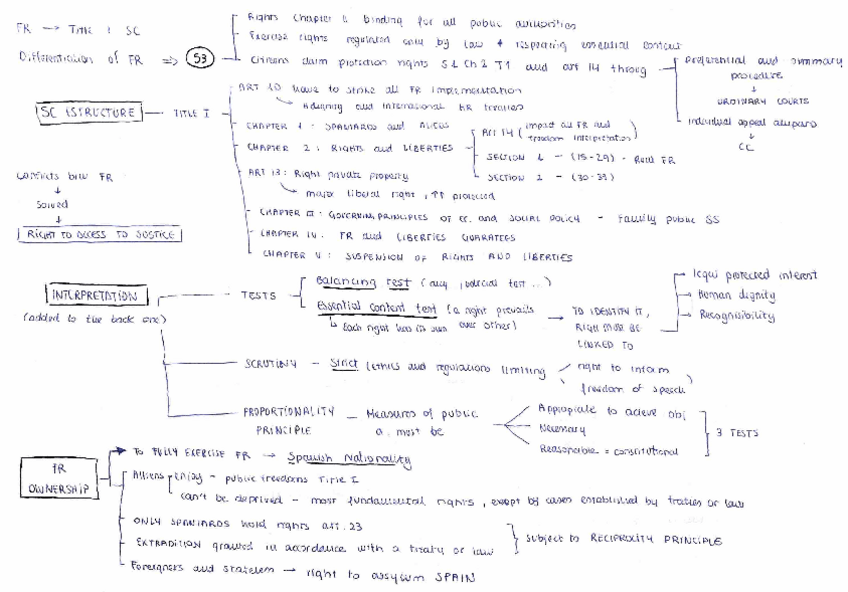 FR → Title I SC
Differentiation of FR ⇒ 53
Rights Chapter II binding for all public authorities
Exercise rights regulated only by law + respecting essential content
Citizens claim protection rights S1 Ch 2 T1 and art 14 through
Preferential and summary procedure
↓
ORDINARY COURTS
Individual appeal amparo
↓
CC
SC STRUCTURE — TITLE I
ART 10 have to strike all FR implementation
Aligning and international HR treaties
CHAPTER 1: SPANIARDS and ALIENS
CHAPTER 2: RIGHTS and LIBERTIES
Art 14 (impact all FR and freedom interpretation)
SECTION 1 - (15-29) - Real FR
SECTION 2 - (30-33)
ART 33: Right private property
major liberal right, ↑↑ protected
CHAPTER III: GOVERNING PRINCIPLES OF EC. and SOCIAL POLICY - Family public SS
CHAPTER IV: FR and LIBERTIES GUARATEES
CHAPTER V: SUSPENSION OF RIGHTS AND LIBERTIES
Conflicts btw FR
↓
Solved
↓
RIGHT TO ACCESS TO JUSTICE
INTERPRETATION
(added to the back one)
TESTS
Balancing test (any judicial test...)
Essential content test (a right prevails over other)
Each right has its own
→ TO IDENTIFY IT, RIGHT MUST BE LINKED TO
legal protected interest
Human dignity
Recognisibility
SCRUTINY - Strict (ethics and regulations limiting
right to inform
freedom of speech)
PROPORTIONALITY PRINCIPLE — Measures of public a. must be
Appropiate to acieve obj
Necessary
Reasonable = constitutional
3 TESTS
FR OWNERSHIP
To FULLY EXERCISE FR → Spanish Nationality
Aliens
Enjoy - public freedoms Title I
can't be deprived - most fundamental rights, except by cases established by treaties or law
ONLY SPANIARDS hold rights art. 23
EXTRADITION granted in accordance with a treaty or law
subject to RECIPROCITY PRINCIPLE
Foreigners and stateless → right to assylum SPAIN